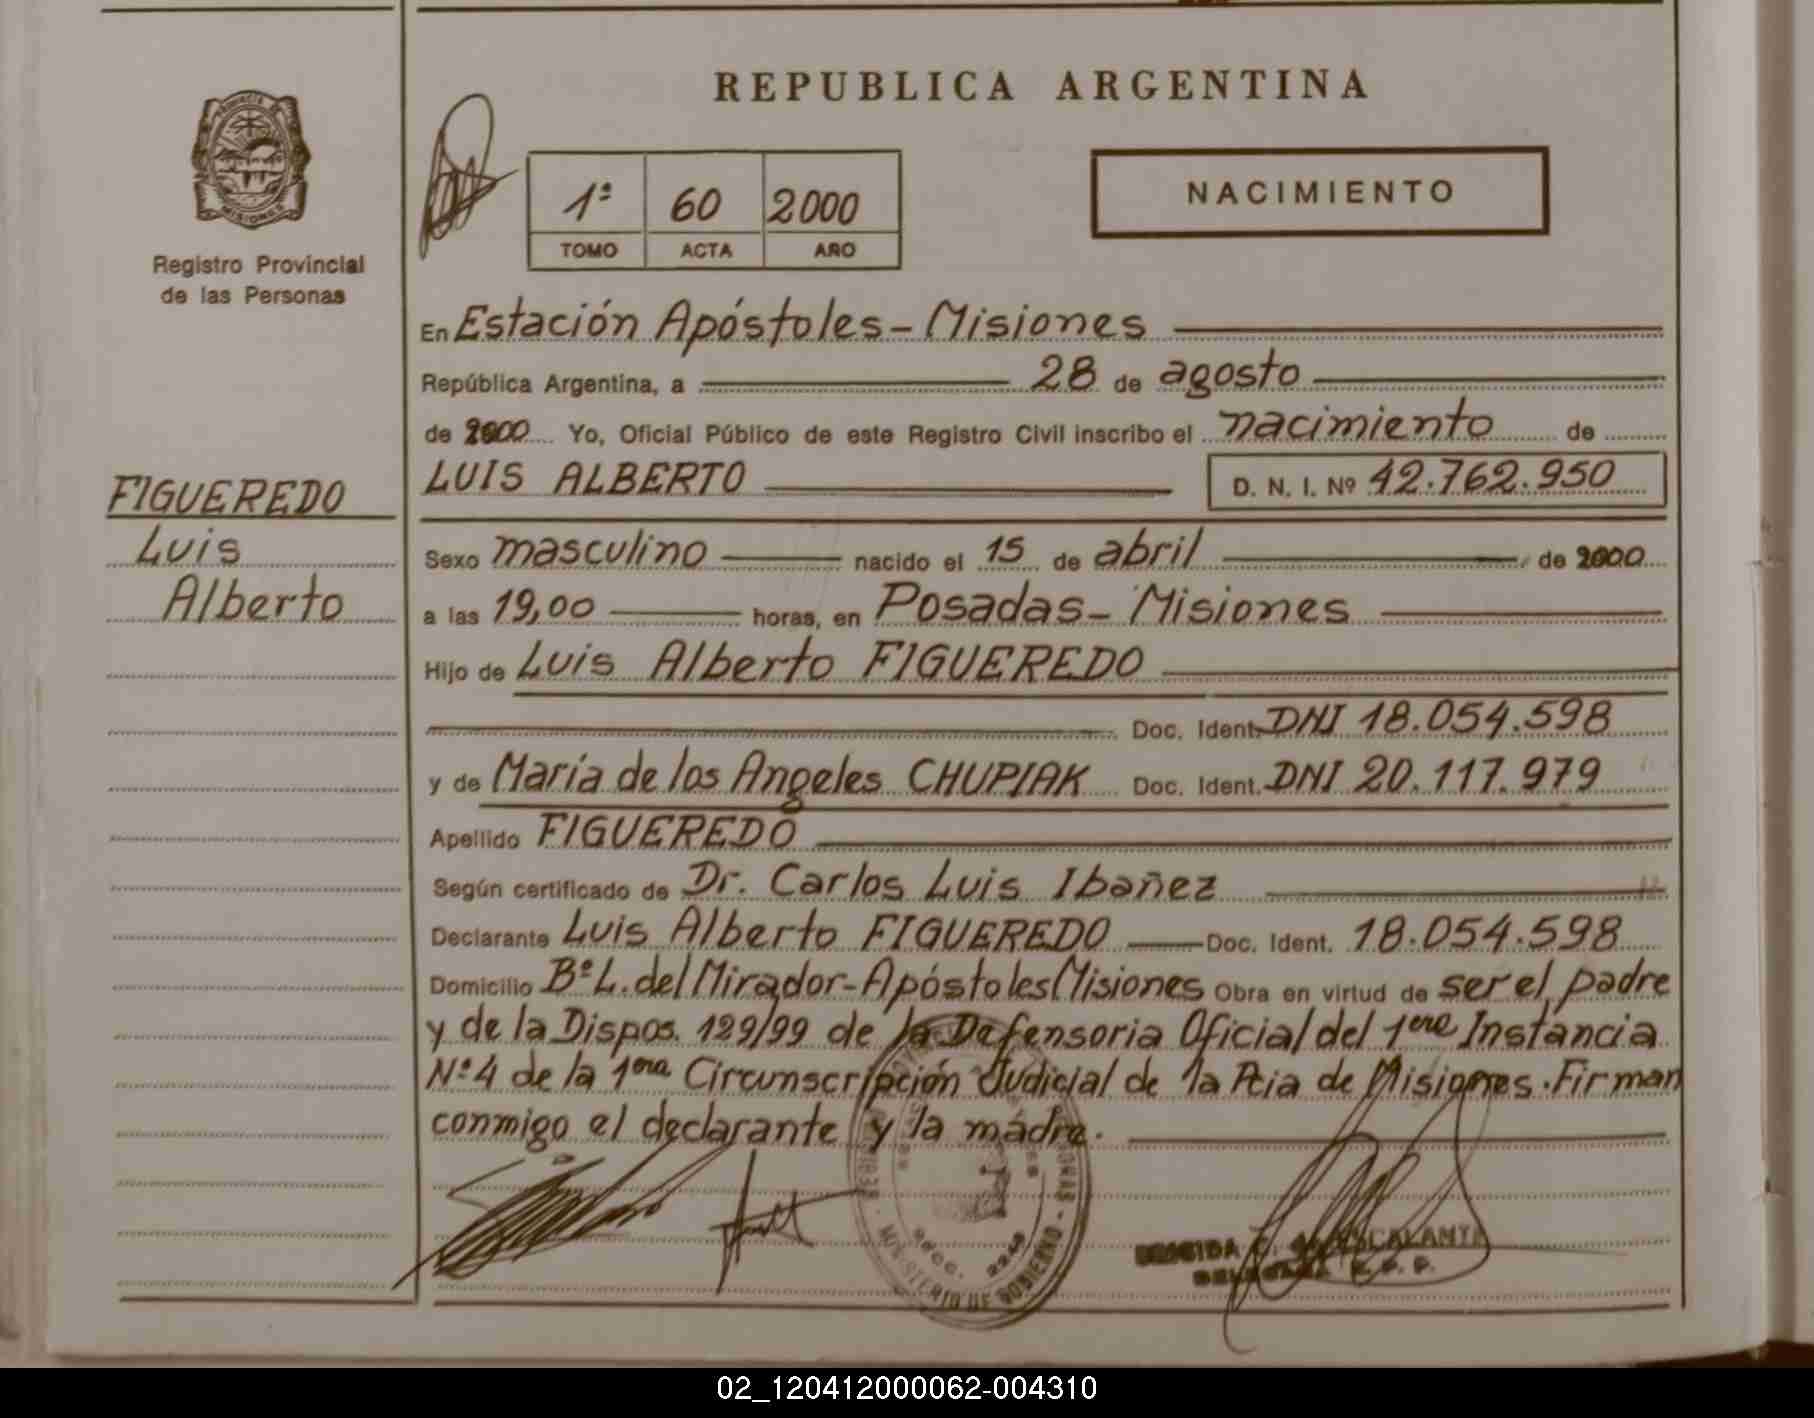 REPUBLICA ARGENTINA
1ª 60 2000
TOMO ACTA AÑO
NACIMIENTO
MISIONES
Registro Provincial
de las Personas
FIGUEREDO
Luis
Alberto
En Estación Apóstoles - Misiones
República Argentina, a 28 de agosto
de 2000 Yo, Oficial Público de este Registro Civil inscribo el nacimiento de
LUIS ALBERTO D. N. I. Nº 42.762.950
Sexo masculino nacido el 15 de abril de 2000
a las 19,00 horas, en Posadas - Misiones
Hijo de Luis Alberto FIGUEREDO
Doc. Ident. DNI 18.054.598
y de María de los Angeles CHUPIAK Doc. Ident. DNI 20.117.979
Apellido FIGUEREDO
Según certificado de Dr. Carlos Luis Ibañez
Declarante Luis Alberto FIGUEREDO Doc. Ident. 18.054.598
Domicilio Bº L. del Mirador - Apóstoles Misiones Obra en virtud de ser el padre
y de la Dispos. 129/99 de la Defensoria Oficial del 1ere Instancia
Nº 4 de la 1era Circunscripción Judicial de la Pcia de Misiones. Firman
conmigo el declarante y la madre.
MINISTERIO DE GOBIERNO
ESCALANTE
02_120412000062-004310